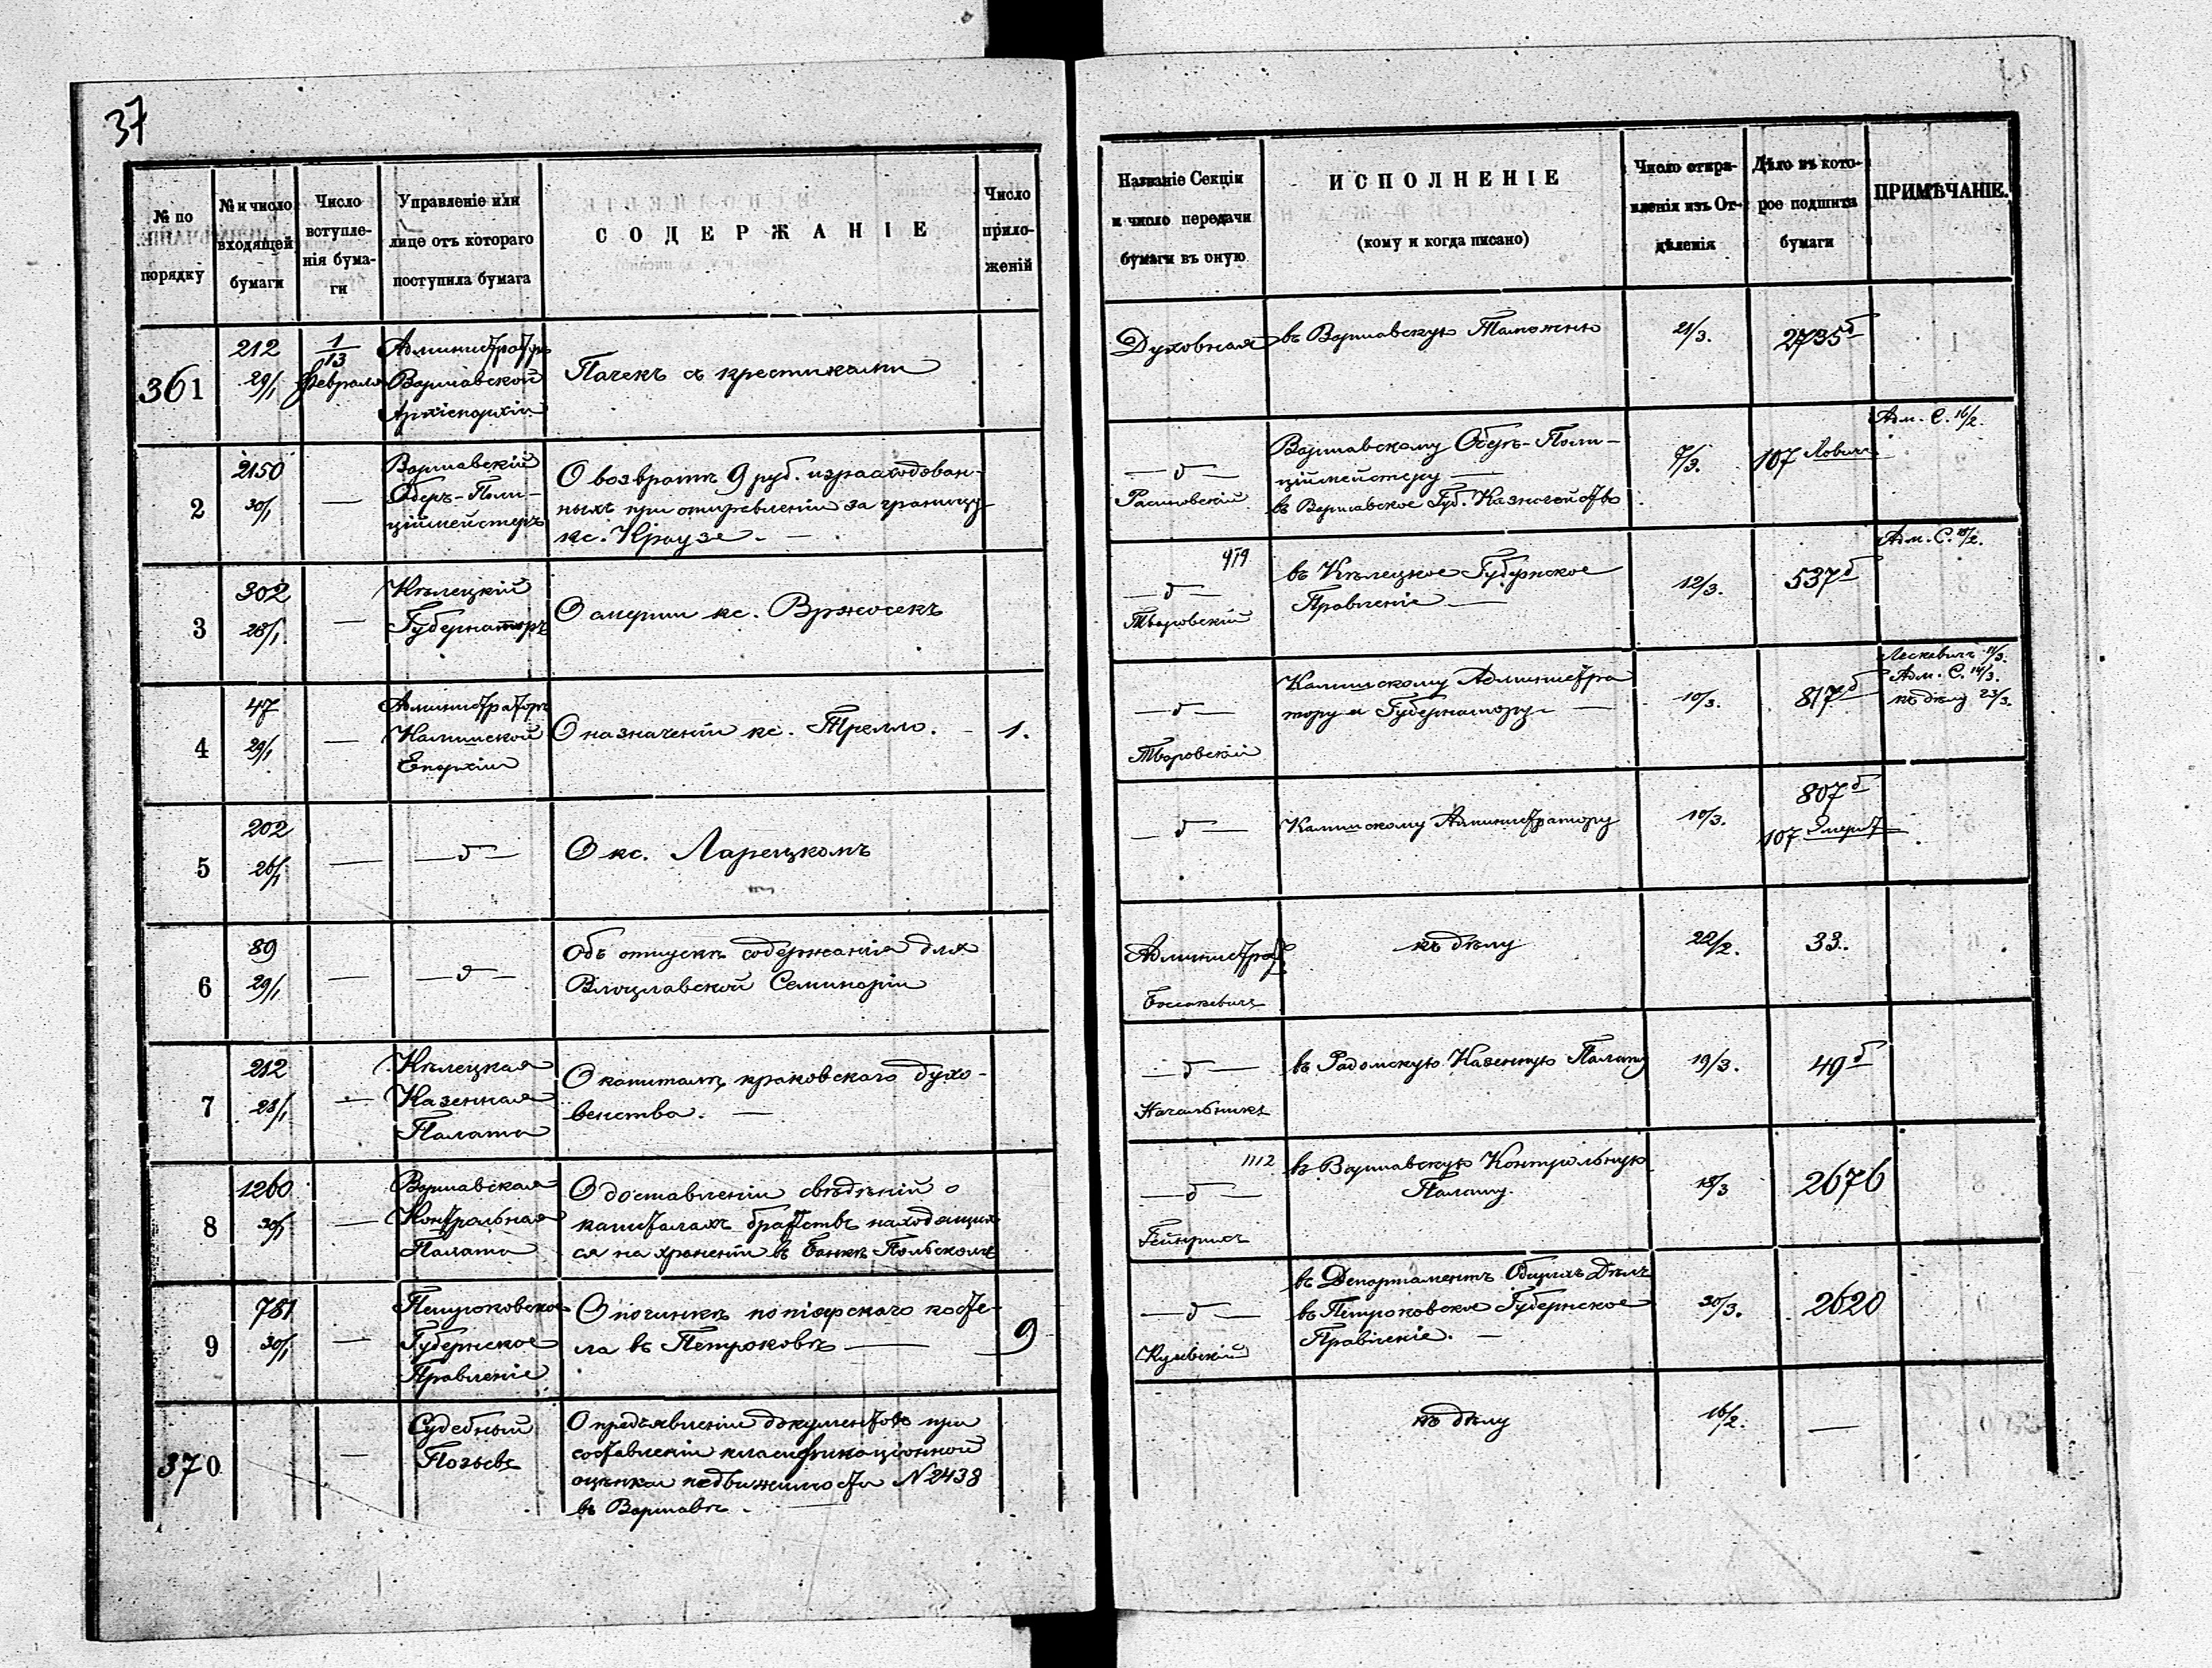 37
№ по порядку
№ и число входящей бумаги
Число вступле-
нія бума-
ги
Управленіе или
лице отъ котораго
поступила бумага
СОДЕРЖАНІЕ
Число
прило-
женій
Названіе Секціи
и число передачи
бумаги въ оную
ИСПОЛНЕНІЕ
(кому и когда писано)
Число отпра-
вленія изъ От-
дѣленія
Дѣло въ кото-
рое подшита
бумаги
ПРИМѢЧАНІЕ.
361
212
29/1
1/13
февраля
Администраторъ
Варшавской
Архіепархіи
Пачекъ съ крестиками
Духовная
въ Варшавскую Таможню
21/3.
2735б
2
2150
30/1
—
Варшавскій
Оберъ-Поли-
ціймейстеръ
О возвратѣ 9 руб. израсходован-
ныхъ при отправленіи за границу
кс. Краузе. —
— д —
Варшавскому Оберъ-Поли-
ціймейстеру —
въ Варшавское Губ. Казначейство
9/3.
107 Лович.
Адм. С. 16/2.
3
302
28/1
—
Кѣлецкій
Губернаторъ
О смерти кс. Вржосекъ
919
— д —
Творовскій
въ Кѣлецкое Губернское
Правленіе —
12/3.
537б
Адм. С. 18/2.
4
47
29/1
—
Администраторъ
Калишской
Епархіи
О назначеніи кс. Трелло. —
1.
— д —
Творовскій
Калишскому Администра
тору и Губернатору —
10/3.
817б
Лескевичъ 11/3.
Адм. С. 14/3.
къ дѣлу 23/3.
5
202
26/1
—
— д —
О кс. Ларецкомъ
— д —
Калишскому Администратору
10/3.
807б
107 Эмерит
6
89
29/1
—
— д —
Объ отпускѣ содержанія для
Влоцлавской Семинаріи
Администрат.
къ дѣлу
22/2.
33.
7
212
28/1
—
Кѣлецкая
Казенная
Палата
О капиталѣ краковскаго духо-
венства. —
— д —
Начальникъ
въ Радомскую Казенную Палату
19/3.
49б
8
1260
30/1
—
Варшавская
Контрольная
Палата
О доставленіи свѣдѣній о
капиталахъ братствъ находящих
ся на храненіи въ Банкѣ Польскомъ
1112
— д —
Гейнрихъ
въ Варшавскую Контрольную
Палату.
18/3
2676
9
781
30/1
—
Петроковское
Губернское
Правленіе
О починкѣ попіарскаго косте-
ла въ Петроковѣ —
9
— д —
въ Департаментъ Общихъ Дѣлъ
въ Петроковское Губернское
Правленіе. —
30/3.
2620
370
—
Судебный
О предъявленіи документовъ при
составленіи класификаціонной
оцѣнки недвижимости N 2438
въ Варшавѣ. —
къ дѣлу
16/2.
—